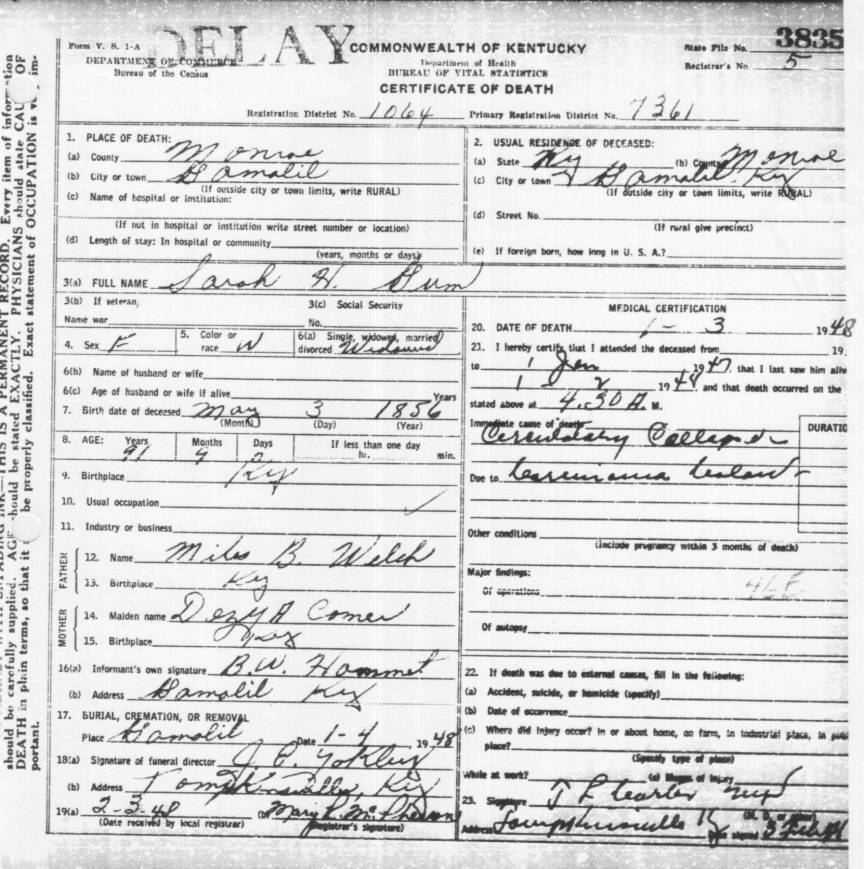 DELAY
Form V. S. 1-A
DEPARTMENT OF COMMERCE
Bureau of the Census
COMMONWEALTH OF KENTUCKY
Department of Health
BUREAU OF VITAL STATISTICS
CERTIFICATE OF DEATH
State File No. 3835
Registrar's No. 5
Registration District No. 1064 Primary Registration District No. 7361
1. PLACE OF DEATH:
(a) County Monroe
(b) City or town Gamalil
(If outside city or town limits, write RURAL)
(c) Name of hospital or institution:
(If not in hospital or institution write street number or location)
(d) Length of stay: In hospital or community
(years, months or days)
2. USUAL RESIDENCE OF DECEASED:
(a) State Ky (b) County Monroe
(c) City or town Gamalil Ky
(If outside city or town limits, write RURAL)
(d) Street No.
(If rural give precinct)
(e) If foreign born, how long in U. S. A.?
3(a) FULL NAME Sarah H. Gum
3(b) If veteran,
Name war
3(c) Social Security
No.
4. Sex F
5. Color or
race W
6(a) Single, widowed, married
divorced Widowed
6(b) Name of husband or wife
6(c) Age of husband or wife if alive Years
7. Birth date of deceased May 3 1856
(Month) (Day) (Year)
8. AGE: Years Months Days If less than one day
91 hr. min.
9. Birthplace Ky
10. Usual occupation
11. Industry or business
FATHER
12. Name Miles B. Welch
13. Birthplace Ky
MOTHER
14. Maiden name Comer
15. Birthplace Ky
16(a) Informant's own signature B.W. Hammet
(b) Address Gamalil Ky
17. BURIAL, CREMATION, OR REMOVAL
Place Gamalil Date 1-4, 1948
18(a) Signature of funeral director J. C. Yokley
(b) Address Tompkinsville, Ky
19(a) 2-3-48 (b) Mary L. McPherson
(Date received by local registrar) (Registrar's signature)
MEDICAL CERTIFICATION
20. DATE OF DEATH 1-3 1948
21. I hereby certify that I attended the deceased from 19
to 1 Jan 1947, that I last saw him alive
1 2 1948, and that death occurred on the
stated above at 4:30 A. M.
Immediate cause of death
Circulatory Collapse
DURATIO
Due to
Other conditions
(Include pregnancy within 3 months of death)
Major findings:
Of operations
46E
Of autopsy
22. If death was due to external causes, fill in the following:
(a) Accident, suicide, or homicide (specify)
(b) Date of occurrence
(c) Where did injury occur? In or about home, on farm, in industrial place, in pub
place?
(Specify type of place)
While at work? (e) Means of injury
23. Signature Carter
Address Tompkinsville Ky
should be carefully supplied. AGE should be stated EXACTLY. PHYSICIANS should state CAU OF
DEATH in plain terms, so that it be properly classified. Exact statement of OCCUPATION is im-
portant.
THIS IS A PERMANENT RECORD. Every item of